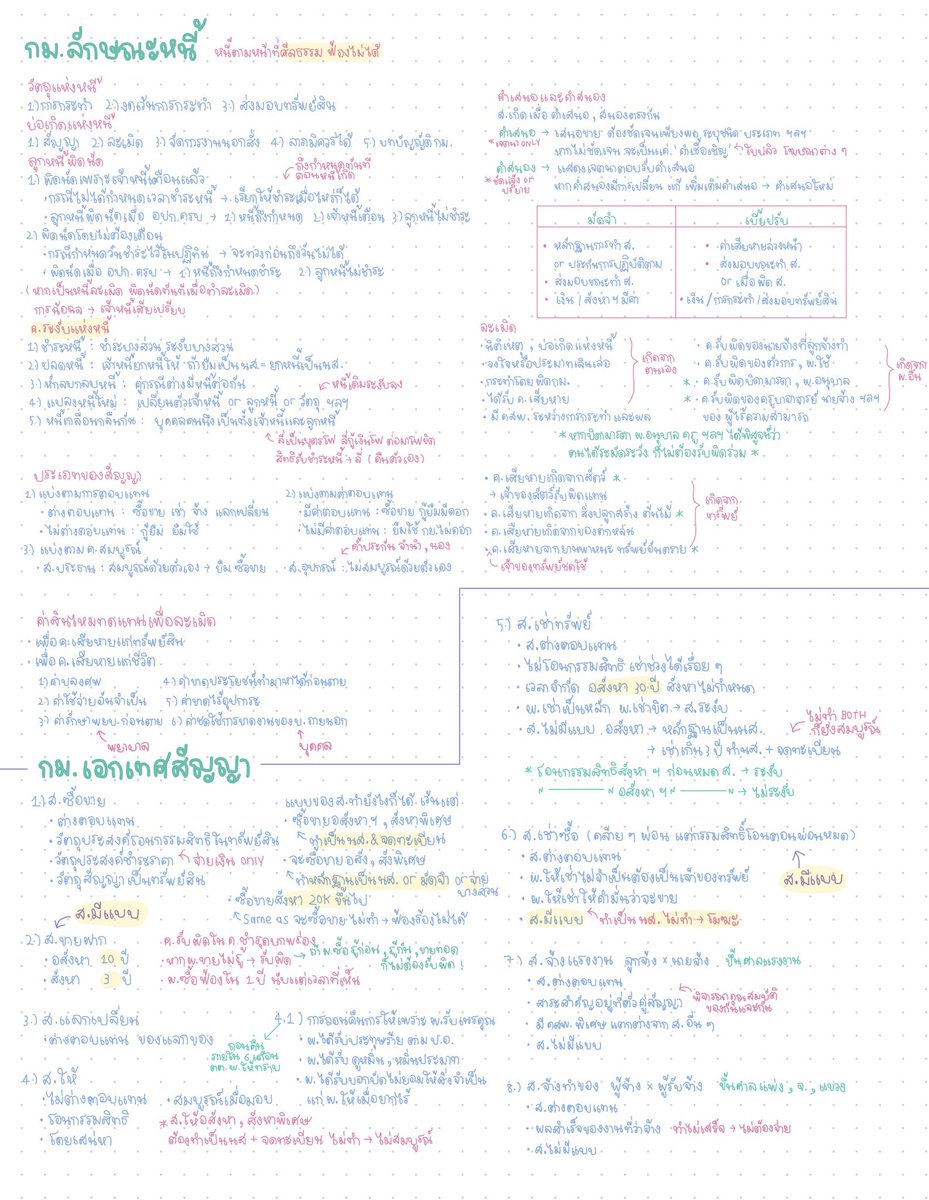 กม.ลักษณะหนี้ หนี้ตามหน้าที่ศีลธรรม ฟ้องไม่ได้
วัตถุแห่งหนี้
1.) การกระทำ 2.) งดเว้นการกระทำ 3.) ส่งมอบทรัพย์สิน
บ่อเกิดแห่งหนี้
1.) สัญญา 2.) ละเมิด 3.) จัดการงานนอกสั่ง 4.) ลาภมิควรได้ 5.) บทบัญญัติกม.
ลูกหนี้ผิดนัด
1.) ผิดนัดเพราะเจ้าหนี้เตือนแล้ว
ถึงกำหนดทันทีตอนหนี้เกิด
• กรณีไม่ได้กำหนดเวลาชำระหนี้ → เรียกให้ชำระเมื่อไหร่ก็ได้
• ลูกหนี้ผิดนัดเมื่อ อปก.ครบ → 1.) หนี้ถึงกำหนด 2.) เจ้าหนี้เตือน 3.) ลูกหนี้ไม่ชำระ
2.) ผิดนัดโดยไม่ต้องเตือน
• กรณีกำหนดวันชำระไว้ในปฏิทิน → จะทวงก่อนถึงวันไม่ได้
• ผิดนัดเมื่อ อปก. ครบ → 1.) หนี้ถึงกำหนดชำระ 2.) ลูกหนี้ไม่ชำระ
(หากเป็นหนี้ละเมิด ผิดนัดทันทีเมื่อทำละเมิด)
การฉ้อฉล → เจ้าหนี้เสียเปรียบ
ค.ระงับแห่งหนี้
1.) ชำระหนี้ : ชำระบางส่วน ระงับบางส่วน
2.) ปลดหนี้ : เจ้าหนี้ยกหนี้ให้ ถ้ายืมเป็นนส = ยกหนี้เป็นนส.
3.) หักลบกลบหนี้ : คู่กรณีต่างมีหนี้ต่อกัน
หนี้เดิมระงับลง
4.) แปลงหนี้ใหม่ : เปลี่ยนตัวเจ้าหนี้ or ลูกหนี้ or วัตถุ ฯลฯ
5.) หนี้เกลื่อนกลืนกัน : บุคคลคนนึงเป็นทั้งเจ้าหนี้และลูกหนี้
ลี่เป็นบุตรโฟ ลี่กู้เงินโฟ ต่อมาโฟขิต
สิทธิรับชำระหนี้ → ลี่ (คืนตัวเอง)
ประเภทของสัญญา
1.) แบ่งตามการตอบแทน
• ต่างตอบแทน : ซื้อขาย เช่า จ้าง แลกเปลี่ยน
• ไม่ต่างตอบแทน : กู้ยืม ยืมใช้
2.) แบ่งตามค่าตอบแทน
• มีค่าตอบแทน : ซื้อขาย กู้ยืมมีดอก
• ไม่มีค่าตอบแทน : ยืมใช้ กย.ไม่ดอก
3.) แบ่งตาม ค.สมบูรณ์
ค้ำประกัน จำนำ, นอง
• ส.ประธาน : สมบูรณ์ด้วยตัวเอง → ยืม ซื้อขาย • ส.อุปกรณ์ : ไม่สมบูรณ์ด้วยตัวเอง
คำเสนอและคำสนอง
ส.เกิดเมื่อ คำเสนอ, สนองตรงกัน
คำเสนอ → เสนอขาย ต้องชัดเจนเพียงพอ ระบุชนิด ประเภท ฯลฯ
*เจตนา ONLY
หากไม่ชัดเจน จะเป็นแค่ 'คำเชื้อเชิญ' ใบปลิว โฆษณาต่าง ๆ
คำสนอง → แสดงเจตนาตอบรับคำเสนอ
*ชัดแจ้ง or ปริยาย
หากคำสนองมีการเปลี่ยน แก้ เพิ่มเติมคำเสนอ → คำเสนอใหม่
มัดจำ เบี้ยปรับ
• หลักฐานการทำ ส. or ประกันการปฏิบัติตาม
• ส่งมอบขณะทำ ส.
• เงิน / สังหาฯ มีค่า
• ค่าเสียหายล่วงหน้า
• ส่งมอบขณะทำ ส. or เมื่อผิด ส.
• เงิน / การกระทำ / ส่งมอบทรัพย์สิน
ละเมิด
• นิติเหตุ, บ่อเกิดแห่งหนี้
• จงใจหรือประมาทเลินเล่อ
• กระทำโดยผิดกม.
• ได้รับ ค.เสียหาย
• มี คสพ. ระหว่างการกระทำ และผล
เกิดจากตนเอง
• ค.รับผิดของนายจ้างที่ลูกจ้างทำ
• ค.รับผิดของตัวการ, พ.ใช้
* • ค.รับผิดบิดามารดา, พ.อนุบาล
* • ค.รับผิดของครูบาอาจารย์ นายจ้าง ฯลฯ
ของ ผู้ไร้ความสามารถ
เกิดจาก พ.อื่น
*หากบิดามารดา พ.อนุบาล ครู ฯลฯ ได้พิสูจน์ว่า
ตนได้ระมัดระวัง ก็ไม่ต้องรับผิดร่วม *
• ค.เสียหายเกิดจากสัตว์ *
→ เจ้าของสัตว์รับผิดแทน
• ค.เสียหายเกิดจาก สิ่งปลูกสร้าง ต้นไม้ *
• ค.เสียหายเกิดจากของตกหล่น
• ค.เสียหายจากยานพาหนะ ทรัพย์อันตราย *
เจ้าของทรัพย์ชดใช้
เกิดจากทรัพย์
ค่าสินไหมทดแทนเพื่อละเมิด
• เพื่อ ค.เสียหายแก่ทรัพย์สิน
• เพื่อ ค.เสียหายแก่ชีวิต
1.) ค่าปลงศพ 4.) ค่าขาดประโยชน์ทำมาหาได้ก่อนตาย
2.) ค่าใช้จ่ายอันจำเป็น 5.) ค่าขาดไร้อุปการะ
3.) ค่ารักษาพยบ.ก่อนตาย 6.) ค่าชดใช้การขาดงานของบ.ภายนอก
พยาบาล บุคคล
กม.เอกเทศสัญญา
1.) ส.ซื้อขาย
• ต่างตอบแทน
• วัตถุประสงค์โอนกรรมสิทธิในทรัพย์สิน
• วัตถุประสงค์ชำระราคา จ่ายเงิน only
• วัตถุสัญญาเป็นทรัพย์สิน
ส.มีแบบ
แบบของ ส.ทำยังไงก็ได้ เว้นแต่
• ซื้อขายอสังหาฯ, สังหาพิเศษ
ทำเป็นนส.& จดทะเบียน
• จะซื้อขายอสัง, สังพิเศษ
ทำหลักฐานเป็นนส. or มัดจำ or จ่ายบางส่วน
• ซื้อขายสังหา 20K ขึ้นไป
Same as จะซื้อขาย ไม่ทำ → ฟ้องร้องไม่ได้
2.) ส.ขายฝาก
• อสังหา 10 ปี
• สังหา 3 ปี
• ค.รับผิดใน ค.ชำรุดบกพร่อง
• หาก พ.ขายไม่รู้ → รับผิด
ถ้า พ.ซื้อรู้ก่อน, รู้กัน, ขายทอด ก็ไม่ต้องรับผิด!
• พ.ซื้อฟ้องใน 1 ปี นับแต่เวลาที่เห็น
3.) ส.แลกเปลี่ยน
• ต่างตอบแทน ของแลกของ
4.) ส.ให้
• ไม่ต่างตอบแทน • สมบูรณ์เมื่อมอบ
• โอนกรรมสิทธิ
• โดยเสน่หา
*ส.ให้อสังหา, สังหาพิเศษ
ต้องทำเป็นนส + จดทะเบียน ไม่ทำ → ไม่สมบูรณ์
4.1) การถอนคืนการให้เพราะ พ.รับเนรคุณ
ถอนคืนภายใน 6 เดือน
• พ.ได้รับประทุษร้าย ตาม ป.อ.
• พ.ได้รับ ดูหมิ่น, หมิ่นประมาท
• พ.ได้รับบอกปัดไม่ยอมให้สิ่งจำเป็น
แก่ พ.ให้เมื่อยากไร้
5.) ส.เช่าทรัพย์
• ส.ต่างตอบแทน
• ไม่โอนกรรมสิทธิ เช่าช่วงได้เรื่อย ๆ
• เวลาจำกัด อสังหา 30 ปี สังหาไม่กำหนด
• พ.เช่าเป็นหลัก พ.เช่าขิต → ส.ระงับ
• ส.ไม่มีแบบ อสังหา → หลักฐานเป็นนส.
→ เช่าเกิน 3 ปี ทำนส. + จดทะเบียน
ไม่ทำ BOTH ก็ยังสมบูรณ์
* โอนกรรมสิทธิสังหาฯ ก่อนหมด ส. → ระงับ
" ―――― " อสังหาฯ " ―――― " → ไม่ระงับ
6.) ส.เช่าซื้อ (คล้าย ๆ ผ่อน แต่กรรมสิทธิ์โอนตอนผ่อนหมด)
• ส.ต่างตอบแทน
• พ.ให้เช่าไม่จำเป็นต้องเป็นเจ้าของทรัพย์
ส.มีแบบ
• พ.ให้เช่าให้คำมั่นว่าจะขาย
• ส.มีแบบ ทำเป็น นส. ไม่ทำ → โมฆะ
7.) ส.จ้างแรงงาน ลูกจ้าง × นายจ้าง ขึ้นศาลแรงงาน
• ส.ต่างตอบแทน
• สาระสำคัญอยู่ที่ตัวคู่สัญญา
พิจารณาคุณสมบัติของกันและกัน
• มี คสพ. พิเศษ แตกต่างจาก ส.อื่น ๆ
• ส.ไม่มีแบบ
8.) ส.จ้างทำของ ผู้จ้าง × ผู้รับจ้าง ขึ้นศาลแพ่ง, จ., แขวง
• ส.ต่างตอบแทน
• ผลสำเร็จของงานที่ว่าจ้าง ทำไม่เสร็จ → ไม่ต้องจ่าย
• ส.ไม่มีแบบ